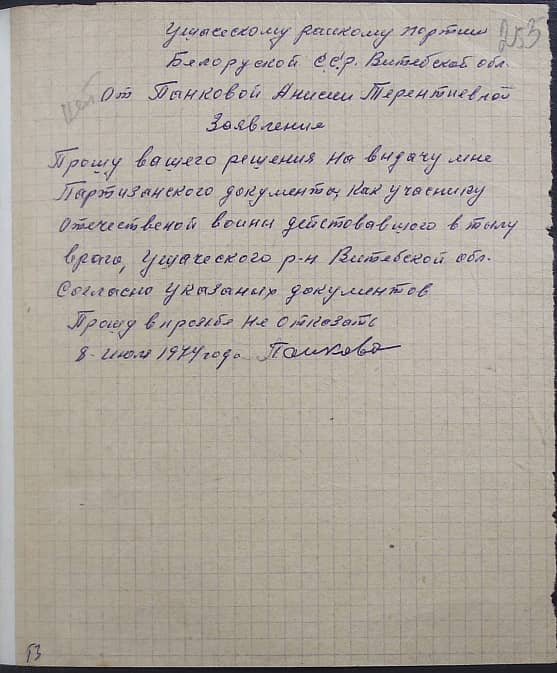 253
Ушаческому райкому портии
Белоруской С.С.Р. Витебской обл.
От Панковой Анисии Терентиевной
Заявления
Прошу вашего решения на выдачу мне
Партизанского документа, как учаснику
Отечественой воины действовавшого в тылу
врага, Ушаческого р-н Витебской обл.
Согласно указаных документов
Прошу в прозьбе не отказать
8 - июля 1974 года Панкова
53